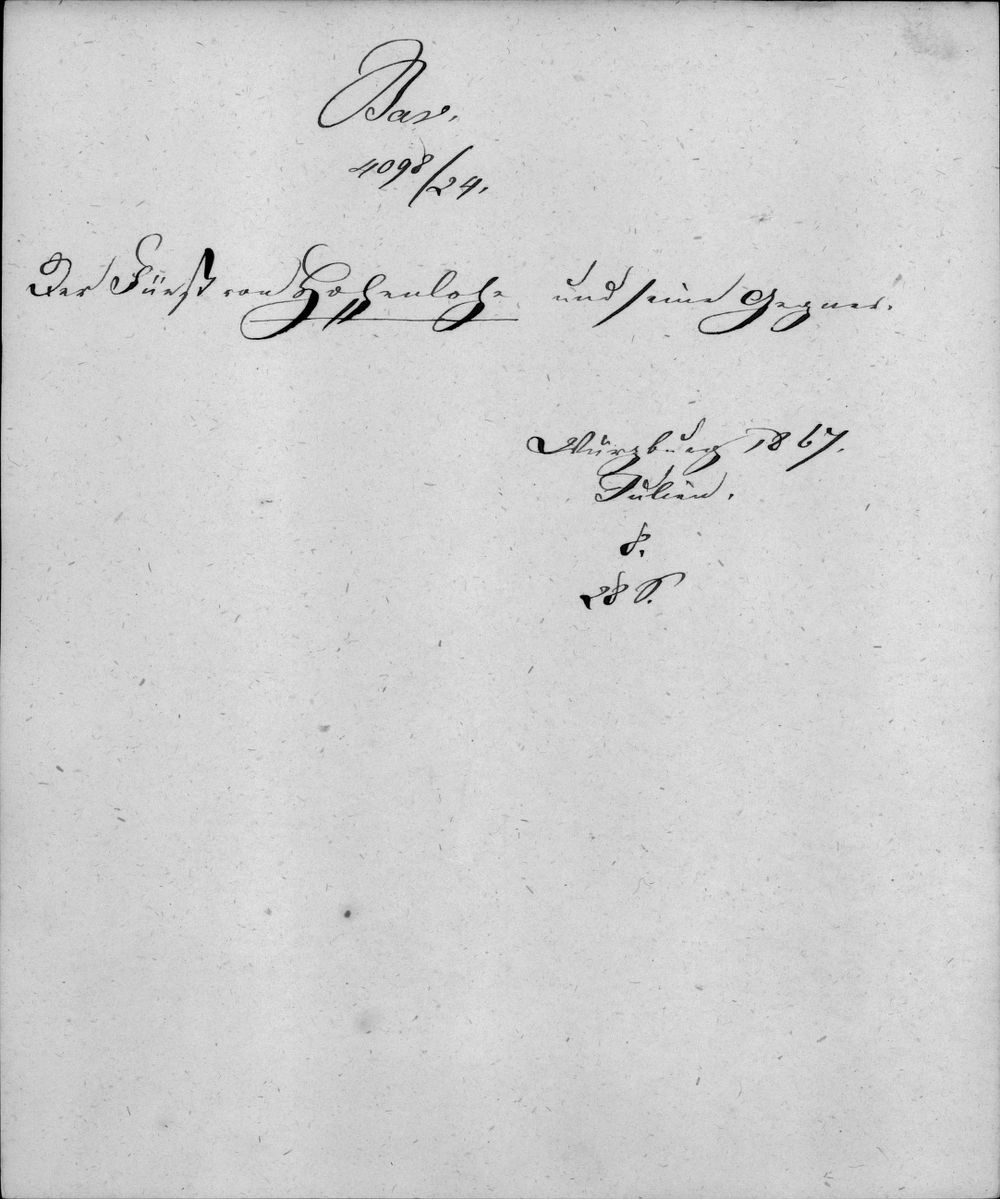 Bav.
4098/24.
Der Fürst von Hohenlohe und seine Gegner.
Würzburg 1867.
Julien.
8.
28 S.